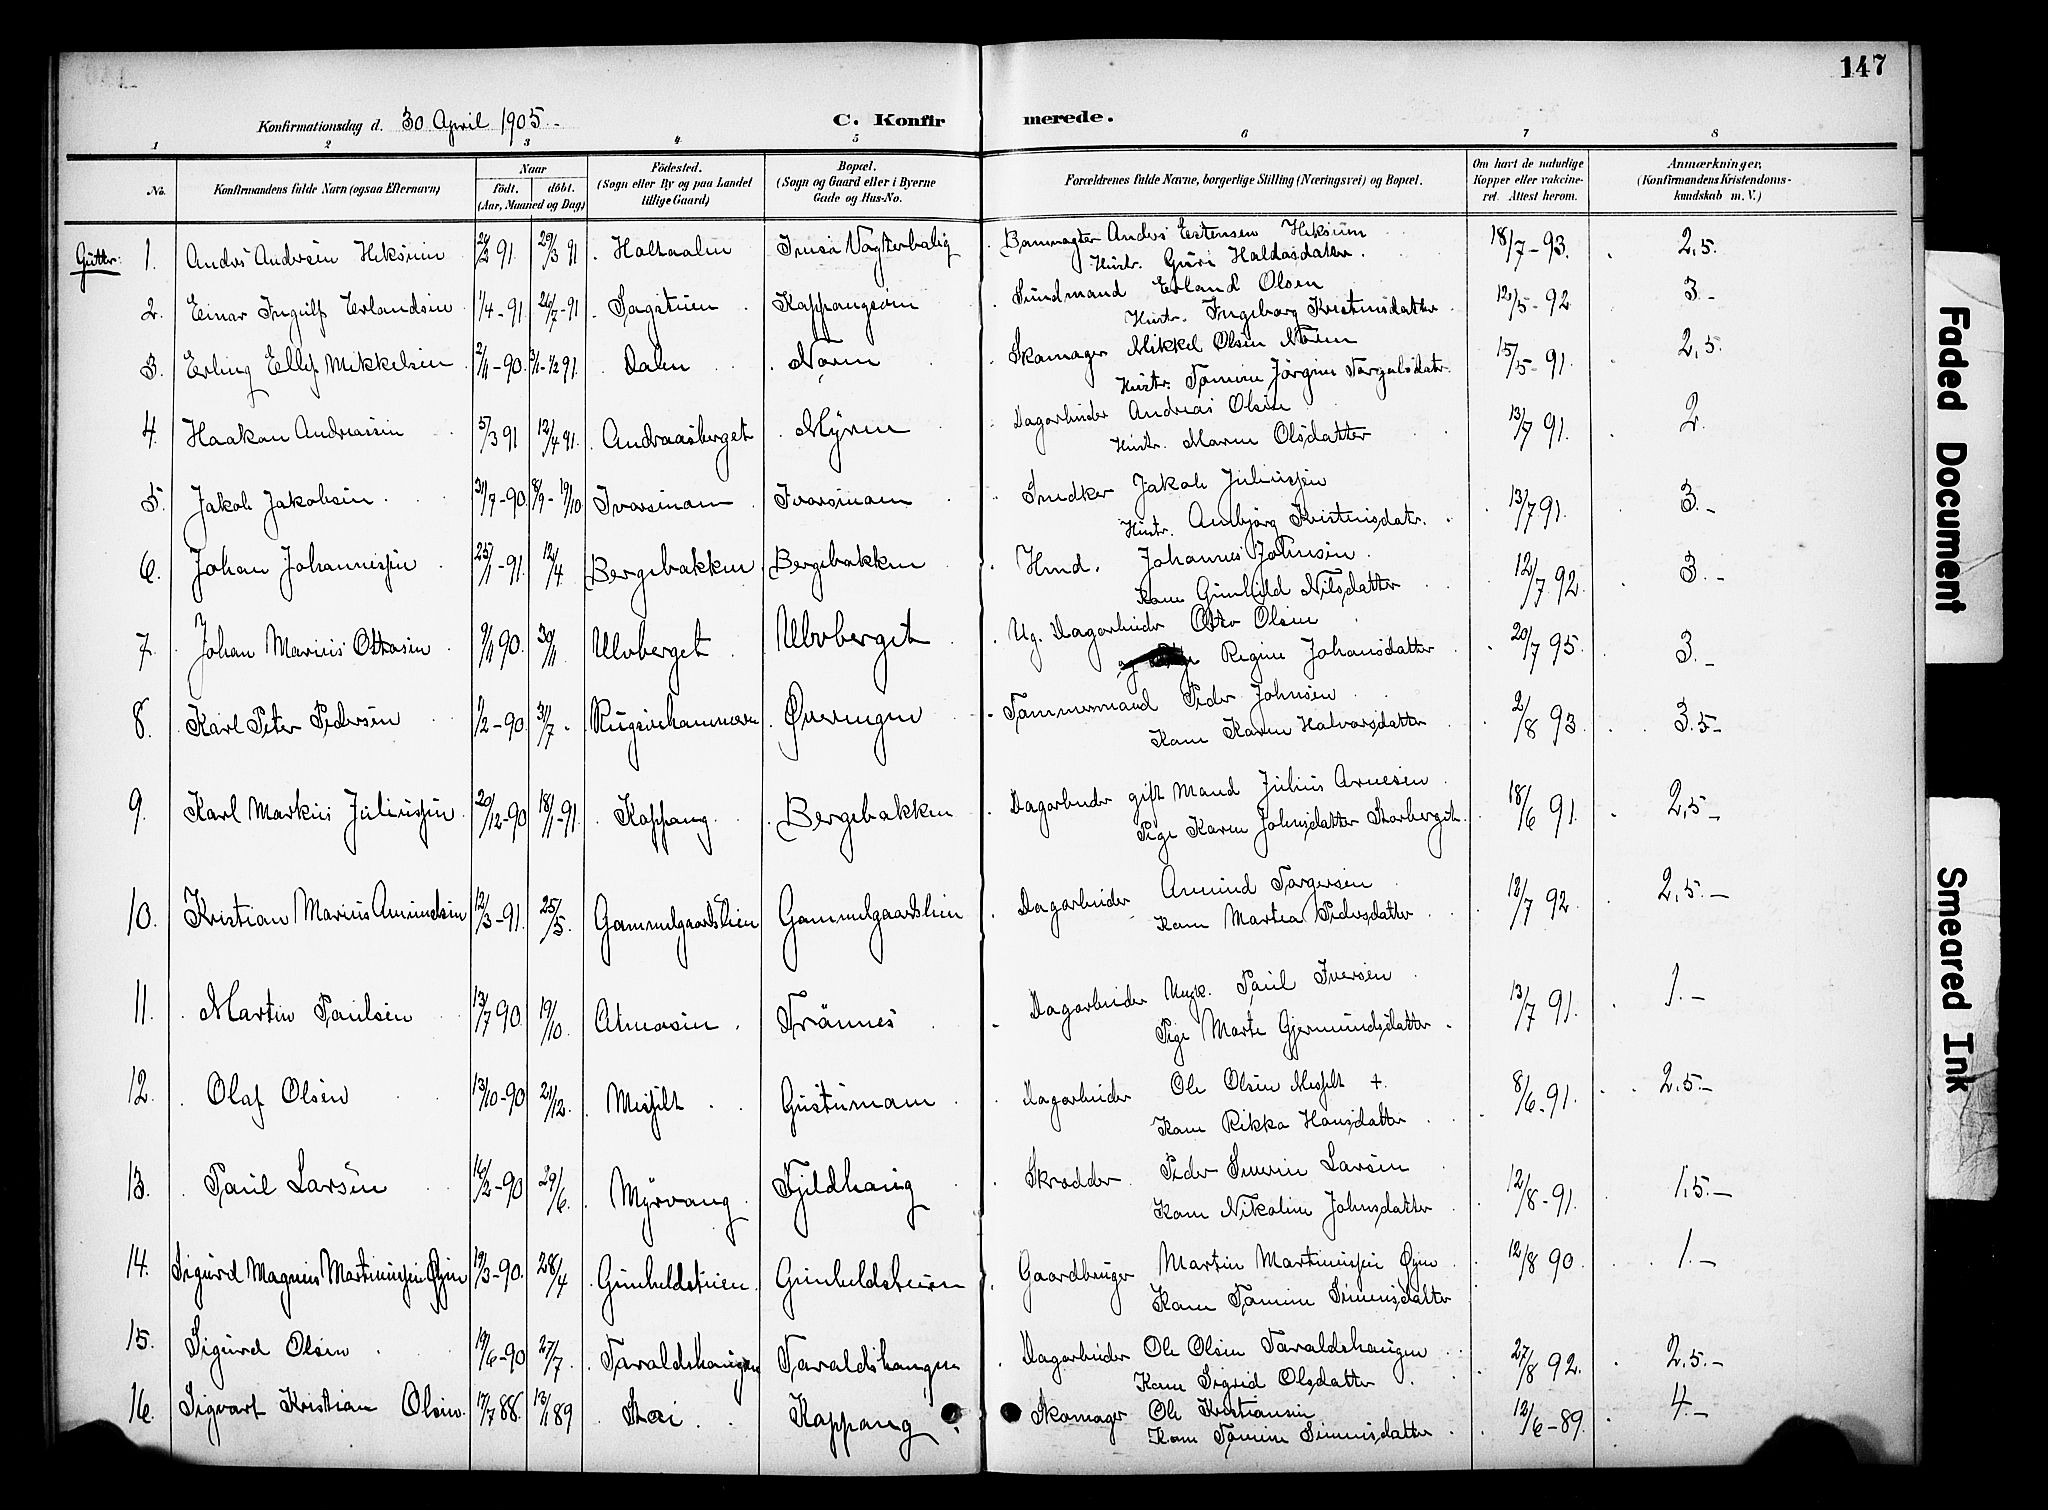 147
Konfirmationsdag d. 30 April 1905. C. Konfirmerede.
1 2 3 4 5 6 7 8
No. Konfirmandens fulde Navn (ogsaa Efternavn) Naar födt. döbt. (Aar, Maaned og Dag) Födested. (Sogn eller By og paa Landet tillige Gaard) Bopæl. (Sogn og Gaard eller i Byerne Gade og Hus-No. Forældrenes fulde Navne, borgerlige Stilling (Næringsvei) og Bopæl. Om havt de naturlige Kopper eller vakcineret. Attest herom. Anmærkninger, (Konfirmandens Kristendomskundskab m. V.)
Gutter:
1. Anders Andersen 29/3 91 Holtaalen Imsa Vogterbolig Banevogter Anders Estensen 18/7-93. 2,5.
Hustr. Guri Haldosdatter.
2. Einar Ingulf Erlandsen 1/4-91 26/7-91 Sagstuen Koppangsøen Sundmand Erland Olsen 12/5-92 3.-
Hustr. Ingeborg Kristensdatter
3. Erling Ellef Mikkelsen 2/11-90 Dalen Noren Skomager Mikkel Olsen Noren 15/5-91. 2,5.
Hustr. Tomine Jörgine Torgalsdatr.
4. Haakon Andreassen 5/3 91 12/4 91. Andraasberget Myren Dagarbeider Andreas Olsen 13/7 91. 2.
Hustr. Maren Olsdatter
5. Jakob Jakobsen 31/7-90 Ivarsmoen Ivarsmoen Snedker Jakob Juliussen 13/7 91. 3.-
Hustr. Anbjørg Kristensdatr.
6. Johan Johannessen 25/1-91. 12/4 Bergebakken Bergebakken Hmd. Johannes Johnsen 12/7 92. 3.-
Kone Gunhild Nilsdatter
7. Johan Marius Ottosen 9/11 90 30/11. Ulvberget Ulvberget Ug. Dagarbeider Otto Olsen 20/7 95. 3.-
Regine Johansdatter
8. Karl Peter Pedersen 1/2-90 31/7. Øvrengen Tømmermand Peder Johnsen 2/8 93. 3.5-
Kone Karen Halvorsdatter
9. Karl Markus Juliussen 20/12-90 18/1-91. Koppang Bergebakken Dagarbeider gift Mand Julius Arnesen 18/6 91. 2,5-
Pige Karen Johnsdatter Storberget.
10. Kristian Marius Amundsen 12/3-91. 25/5. Gammelgaardslien Gammelgaardslien Dagarbeider Amund Torgersen 12/7 92. 2,5.-
Kone Martea Pedersdatter
11. Martin Paulsen 13/7 90. 19/10. Atneosen Trönnes Dagarbeider Ungk. Paul Iversen 13/7 91. 1.-
Pige Marte Gjermundsdatter
12. Olaf Olsen 13/10-90 21/12. Messelt Gustumoen Dagarbeider Ole Olsen Messelt +. 8/6-91. 2.5.-
Kone Rikka Hansdatter
13. Paul Larsen 16/2-90 29/6. Myrvang Fjeldhaug Skrædder Peder Severin Larsen 12/8-91. 1,5.-
Kone Nikoline Johnsdatter
14. Sigurd Magnus Martinussen Øyen 19/3-90. 28/4 Gunheldstuen Gunheldstuen Gaardbruger Martin Martinussen Øyen 12/8 90. 1.-
Kone Tomine Simensdatter
15. Sigurd Olsen 19/6-90 27/7. Taraldshaugen Taraldshaugen Dagarbeider Ole Olsen Taraldshaugen 27/8 92. 2.5.-
Kone Sigrid Olsdatter
16. Sigvart Kristian Olsen 17/7 88. 13/1 89 Stai Koppang Skomager Ole Kristiansen 12/6-89. 4.-
Kone Tomine Simensdatter
Faded Document
Smeared Ink